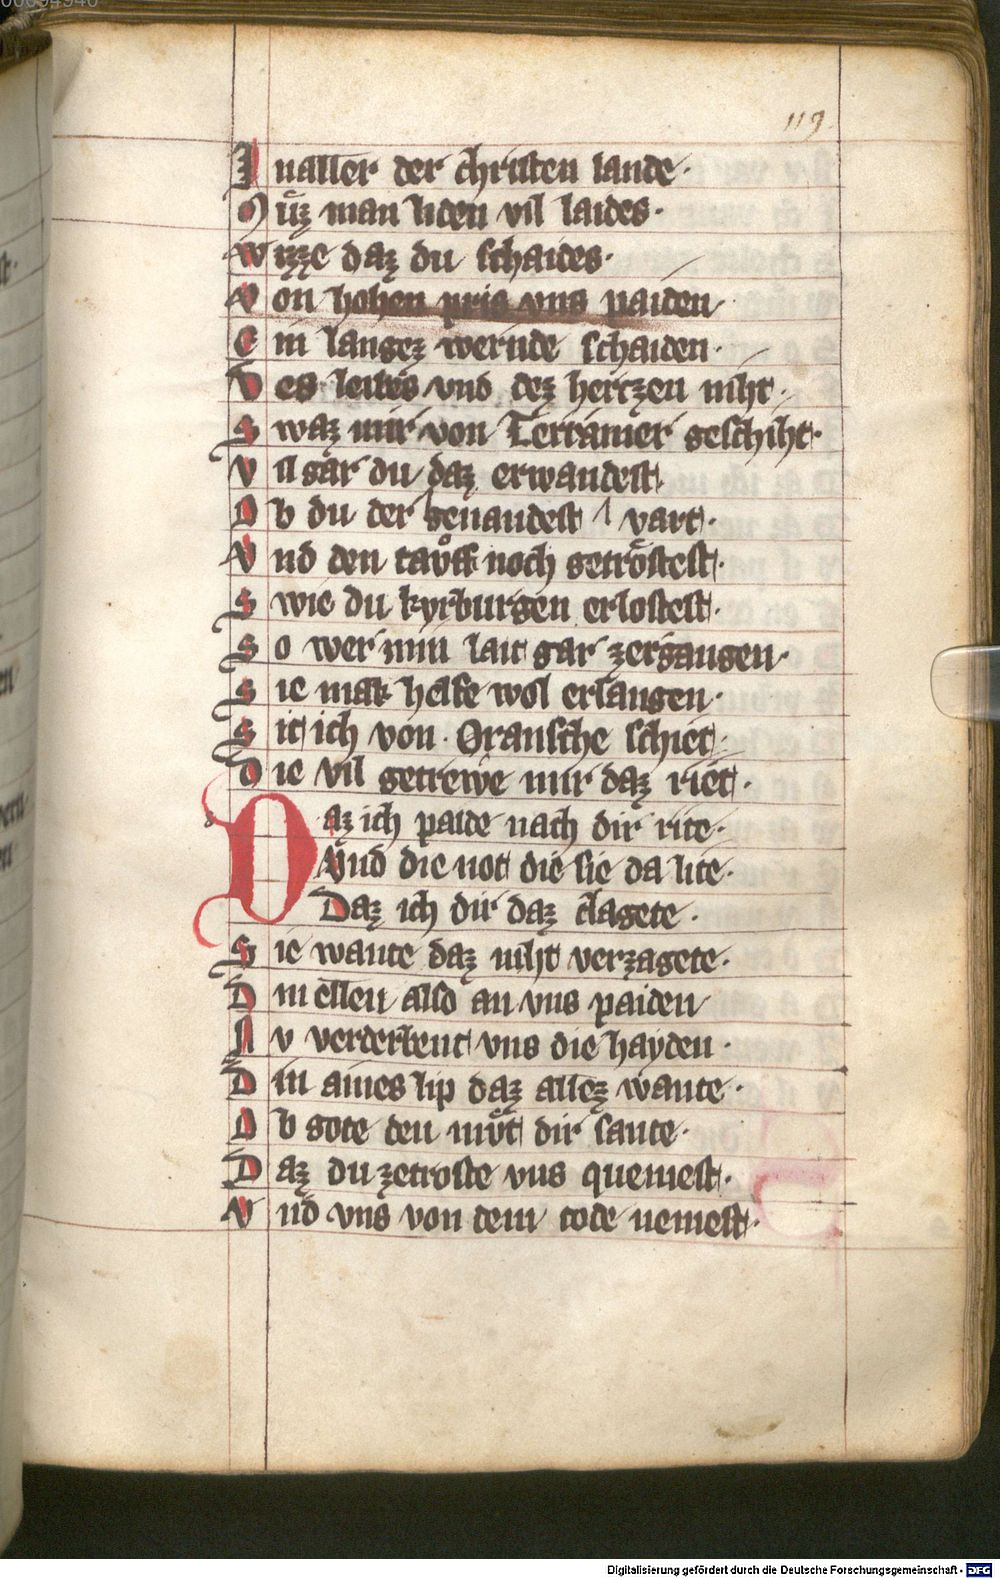 119
I naller der christen lande·
M uͤz man liden vil laides·
w izze daz du schaides·
v on hohen pris vns paiden
E in langez wernde schaiden·
D es leibes vnd dez hertzen niht·
S waz mir von Terramer geschiht·
v il gar du daz erwandest·
O b du der genandest vart·
V nd den tavͦff noch getroͤstest·
S wie du kyrburgen erlostest·
S o wer min lait gar zergangen·
S ie mak helfe wol erlangen·
S it ich von· Oransche schiet·
D ie vil getrewe mir daz riet·
D az ich palde nach dir rite·
Vnd die not die sie da lite·
Daz ich dir daz clagete·
S ie wante daz niht verzagete·
D in ellen also an vns paiden
N v verderbent vns die hayden·
D in aines lip daz allez wante·
O b gote den muͤt dir sante·
D az du zetroste vns quemest·
V nd vns von dem tode nemest·
Digitalisierung gefördert durch die Deutsche Forschungsgemeinschaft - DFG